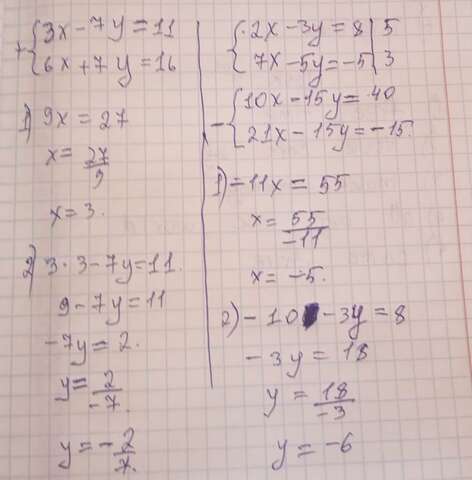 +{3x-7y=11
6x+7y=16
1) 9x=27
x=27/9
x=3.
2) 3·3-7y=11.
9-7y=11
-7y=2.
y=2/-7.
y=-2/7.
{2x-3y=8|5
7x-5y=-5|3
-{10x-15y=40
21x-15y=-15.
1)-11x=55
x=55/-11
x=-5.
2)-10-3y=8
-3y=18
y=18/-3
y=-6